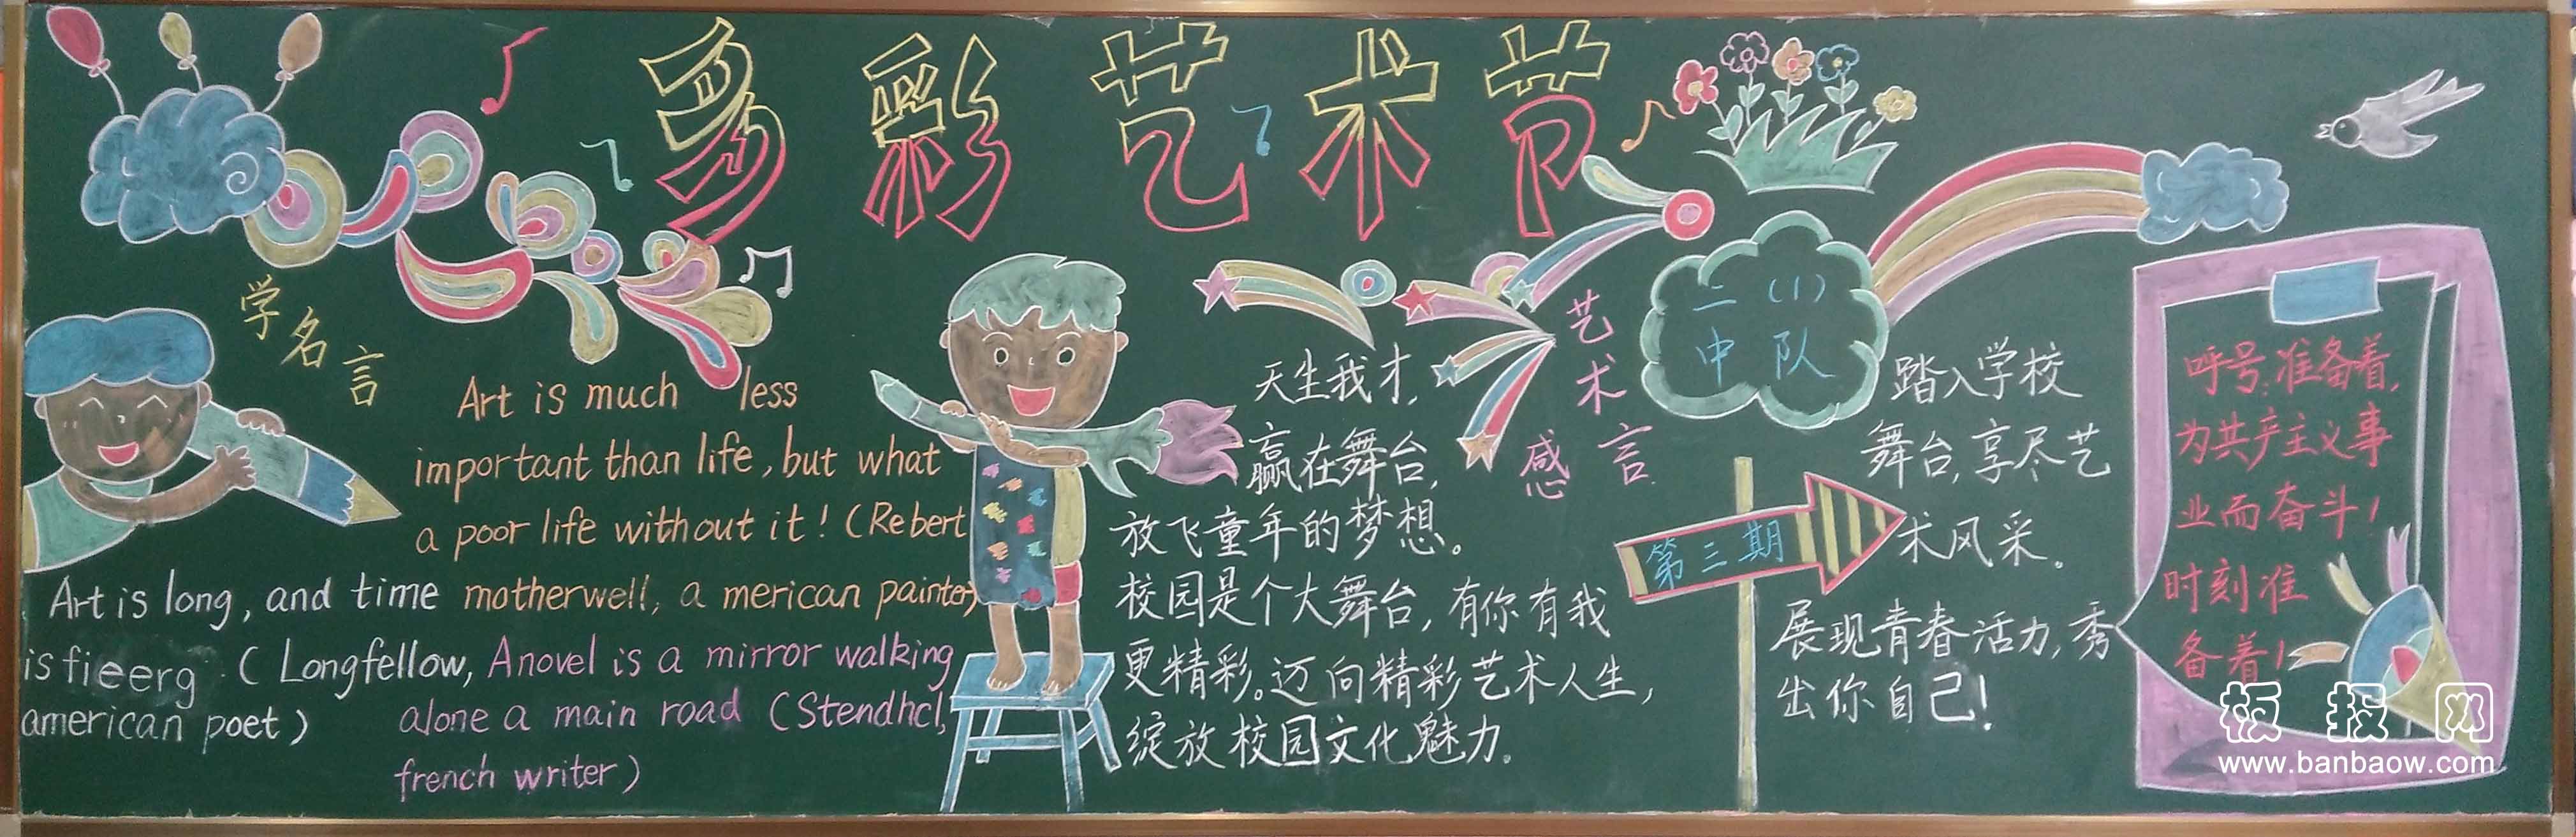 多彩艺术节
学名言
Art is much less
important than life, but what
a poor life without it! (Rebert
motherwell, a merican painter)
Art is long, and time
is fieerg. (Longfellow,
american poet)
Anovel is a mirror walking
alone a main road (Stendhcl,
french writer)
艺术
感言
天生我才,
赢在舞台,
放飞童年的梦想。
校园是个大舞台,有你有我
更精彩。迈向精彩艺术人生,
绽放校园文化魅力。
二(1)
中队
第三期
踏入学校
舞台,享尽艺
术风采。
展现青春活力,秀
出你自己!
呼号:准备着,
为共产主义事
业而奋斗!
时刻准
备着!
板报网
www.banbaow.com